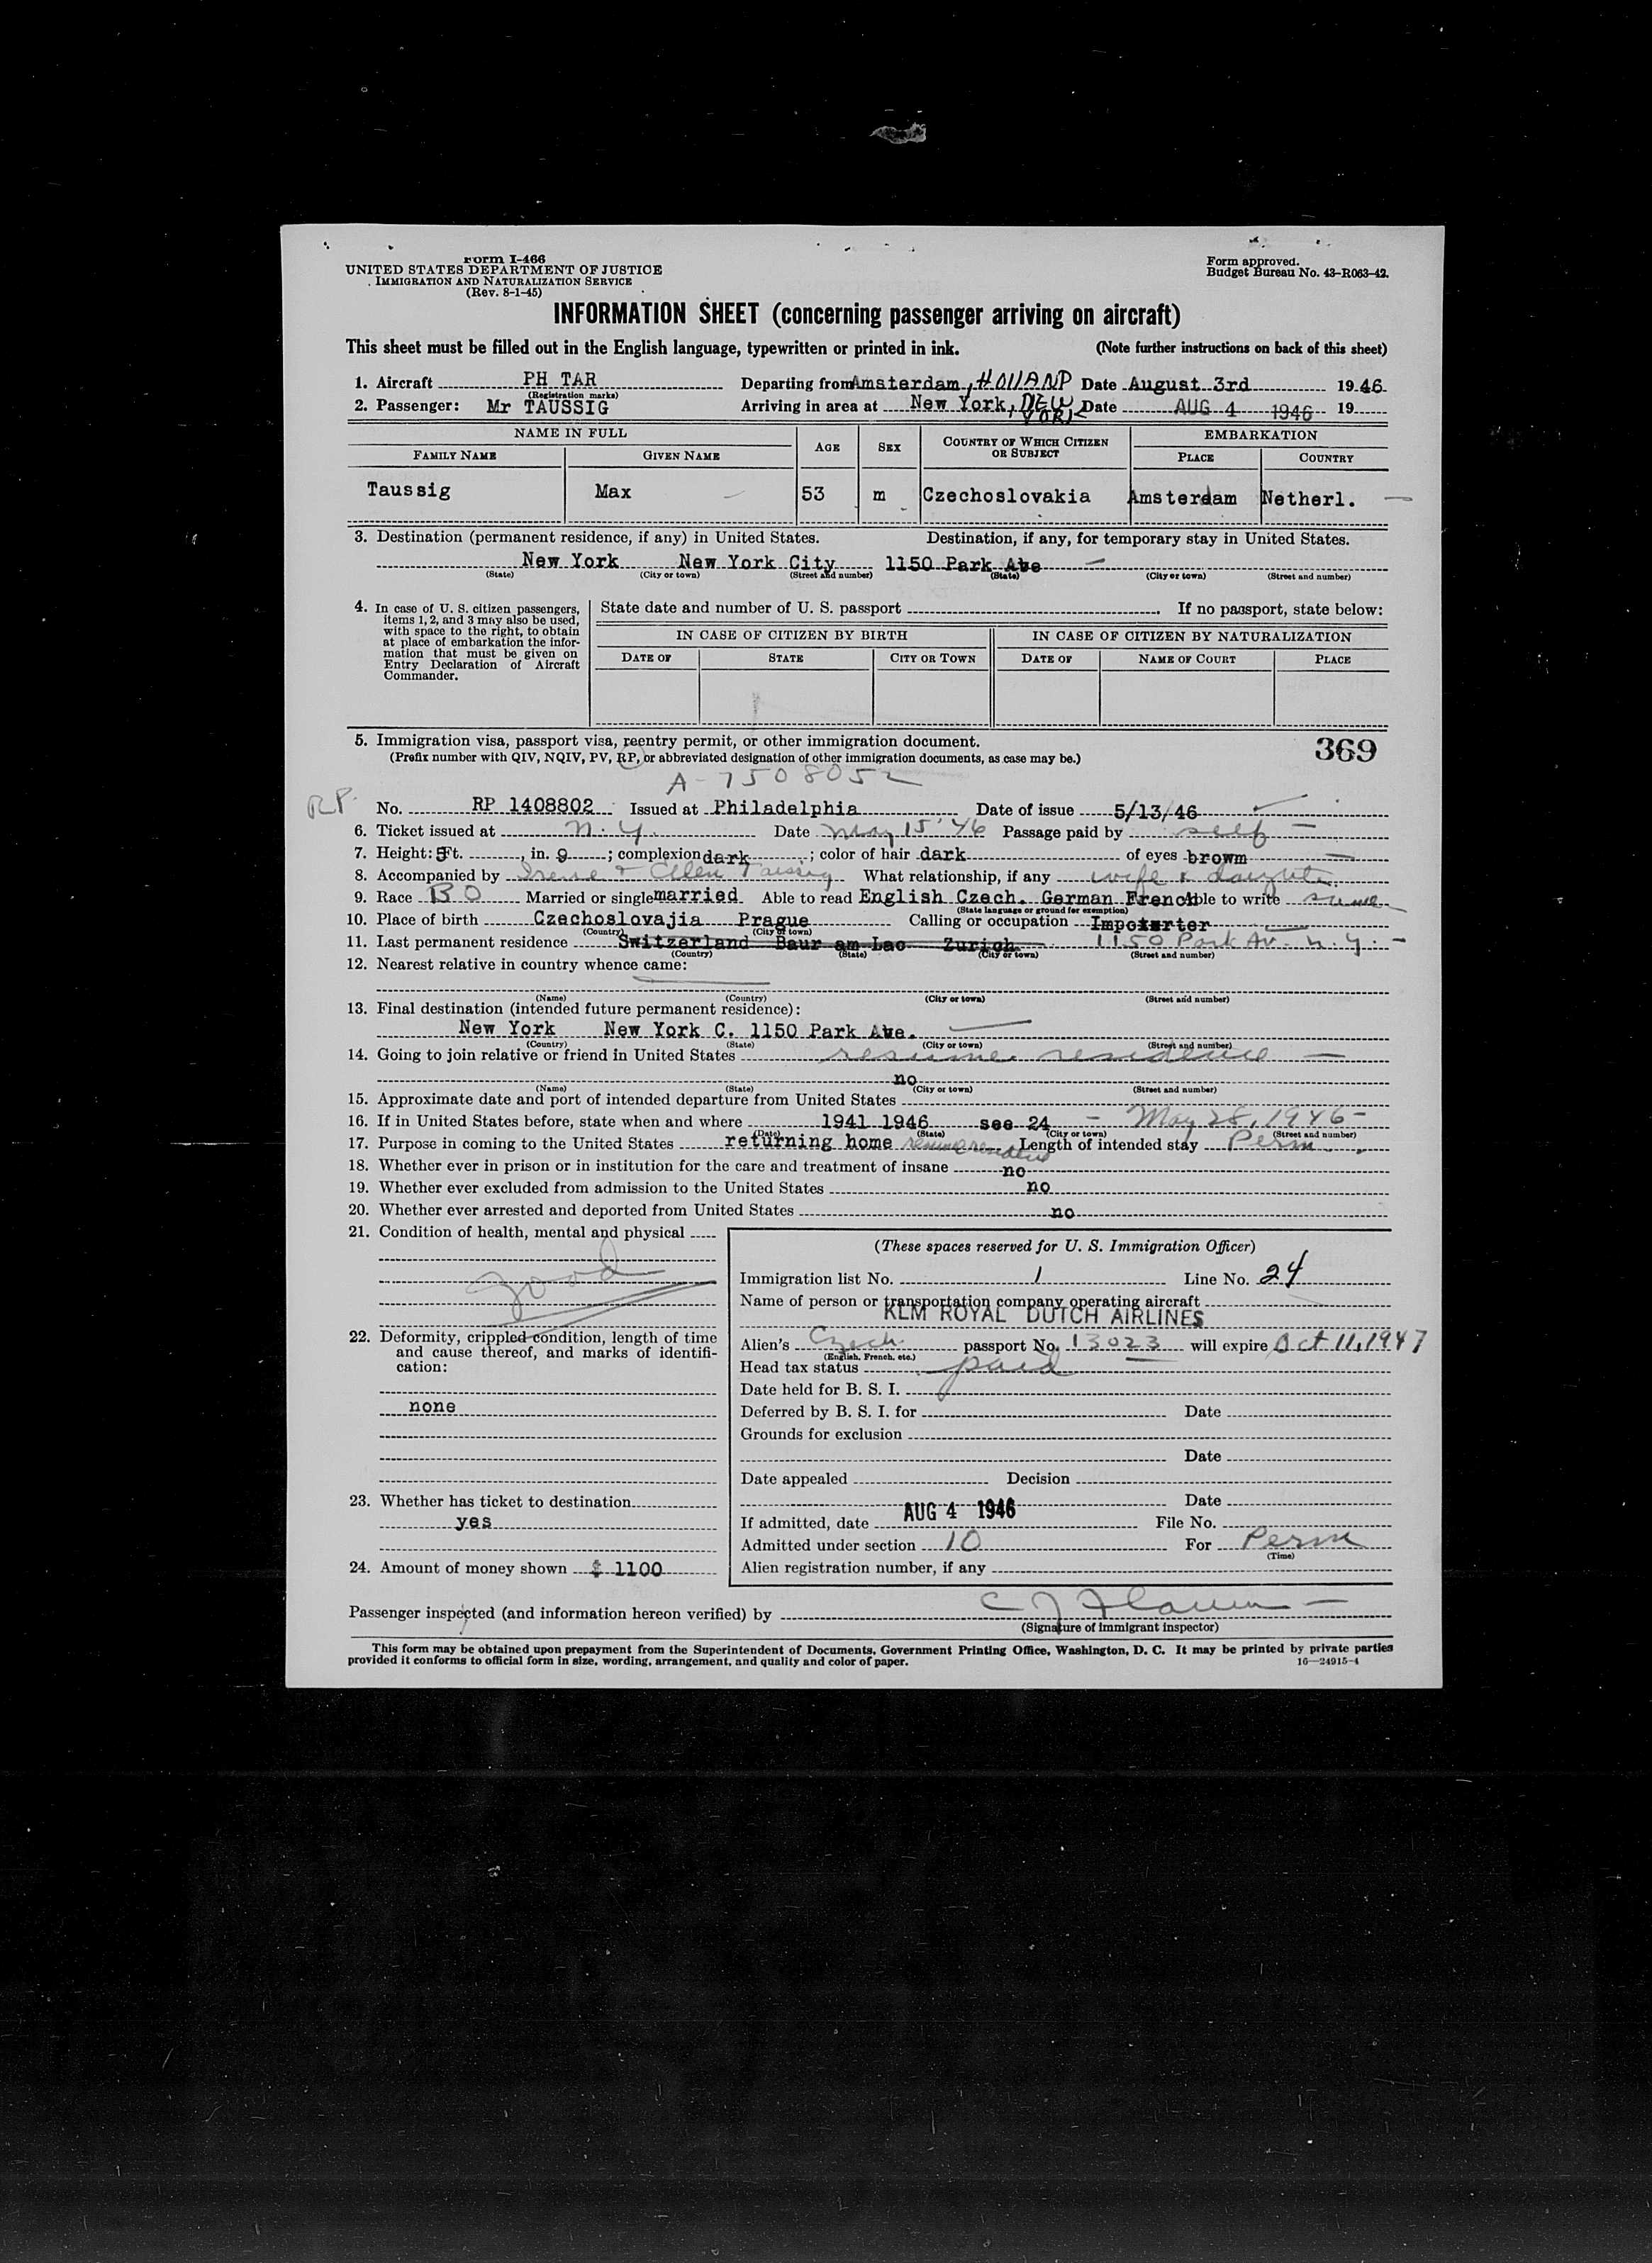 Form I-466
UNITED STATES DEPARTMENT OF JUSTICE
IMMIGRATION AND NATURALIZATION SERVICE
(Rev. 8-1-45)
Form approved.
Budget Bureau No. 43-R063-42.
INFORMATION SHEET (concerning passenger arriving on aircraft)
This sheet must be filled out in the English language, typewritten or printed in ink. (Note further instructions on back of this sheet)
1. Aircraft PH TAR Departing from Amsterdam, HOLLAND Date August 3rd 1946
(Registration marks)
2. Passenger: Mr TAUSSIG Arriving in area at New York, NEW YORK Date AUG 4 1946 19
NAME IN FULL AGE SEX COUNTRY OF WHICH CITIZEN OR SUBJECT EMBARKATION
FAMILY NAME GIVEN NAME PLACE COUNTRY
Taussig Max 53 m Czechoslovakia Amsterdam Netherl.
3. Destination (permanent residence, if any) in United States. Destination, if any, for temporary stay in United States.
New York New York City 1150 Park Ave
(State) (City or town) (Street and number) (State) (City or town) (Street and number)
4. In case of U. S. citizen passengers, items 1, 2, and 3 may also be used, with space to the right, to obtain at place of embarkation the information that must be given on Entry Declaration of Aircraft Commander.
State date and number of U. S. passport . If no passport, state below:
IN CASE OF CITIZEN BY BIRTH IN CASE OF CITIZEN BY NATURALIZATION
DATE OF STATE CITY OR TOWN DATE OF NAME OF COURT PLACE
5. Immigration visa, passport visa, reentry permit, or other immigration document.
(Prefix number with QIV, NQIV, PV, RP, or abbreviated designation of other immigration documents, as case may be.)
369
A-7508052
RP No. RP 1408802 Issued at Philadelphia Date of issue 5/13/46
6. Ticket issued at N. Y. Date May 15 '46 Passage paid by self
7. Height: 5 Ft. , in. 9 ; complexion dark ; color of hair dark of eyes browm
8. Accompanied by Irene & Ellen Taussig What relationship, if any wife & daughter
9. Race BO Married or single married Able to read English Czech. German French Able to write same
(State language or ground for exemption)
10. Place of birth Czechoslovajia Prague Calling or occupation Importer
(Country) (City or town)
11. Last permanent residence Switzerland Baur am Lac Zurich 1150 Park Av. N. Y.
(Country) (State) (City or town) (Street and number)
12. Nearest relative in country whence came:
(Name) (Country) (City or town) (Street and number)
13. Final destination (intended future permanent residence):
New York New York C. 1150 Park Ave.
(Country) (State) (City or town) (Street and number)
14. Going to join relative or friend in United States resume residence
no
(Name) (State) (City or town) (Street and number)
15. Approximate date and port of intended departure from United States
16. If in United States before, state when and where 1941 1946 see 24 - May 28, 1946 -
(Date) (State) (City or town) (Street and number)
17. Purpose in coming to the United States returning home resume residence Length of intended stay Perm.
18. Whether ever in prison or in institution for the care and treatment of insane no
19. Whether ever excluded from admission to the United States no
20. Whether ever arrested and deported from United States no
21. Condition of health, mental and physical
good
22. Deformity, crippled condition, length of time and cause thereof, and marks of identification:
none
23. Whether has ticket to destination
yes
24. Amount of money shown $ 1100
(These spaces reserved for U. S. Immigration Officer)
Immigration list No. 1 Line No. 24
Name of person or transportation company operating aircraft
KLM ROYAL DUTCH AIRLINES
Alien's Czech. passport No. 13023 will expire Oct 11, 1947
(English, French, etc.)
Head tax status paid
Date held for B. S. I.
Deferred by B. S. I. for Date
Grounds for exclusion
Date
Date appealed Decision
Date
If admitted, date AUG 4 1946 File No.
Admitted under section 10 For Perm
(Time)
Alien registration number, if any
Passenger inspected (and information hereon verified) by
(Signature of immigrant inspector)
This form may be obtained upon prepayment from the Superintendent of Documents, Government Printing Office, Washington, D. C. It may be printed by private parties
provided it conforms to official form in size, wording, arrangement, and quality and color of paper.
16—24915-4